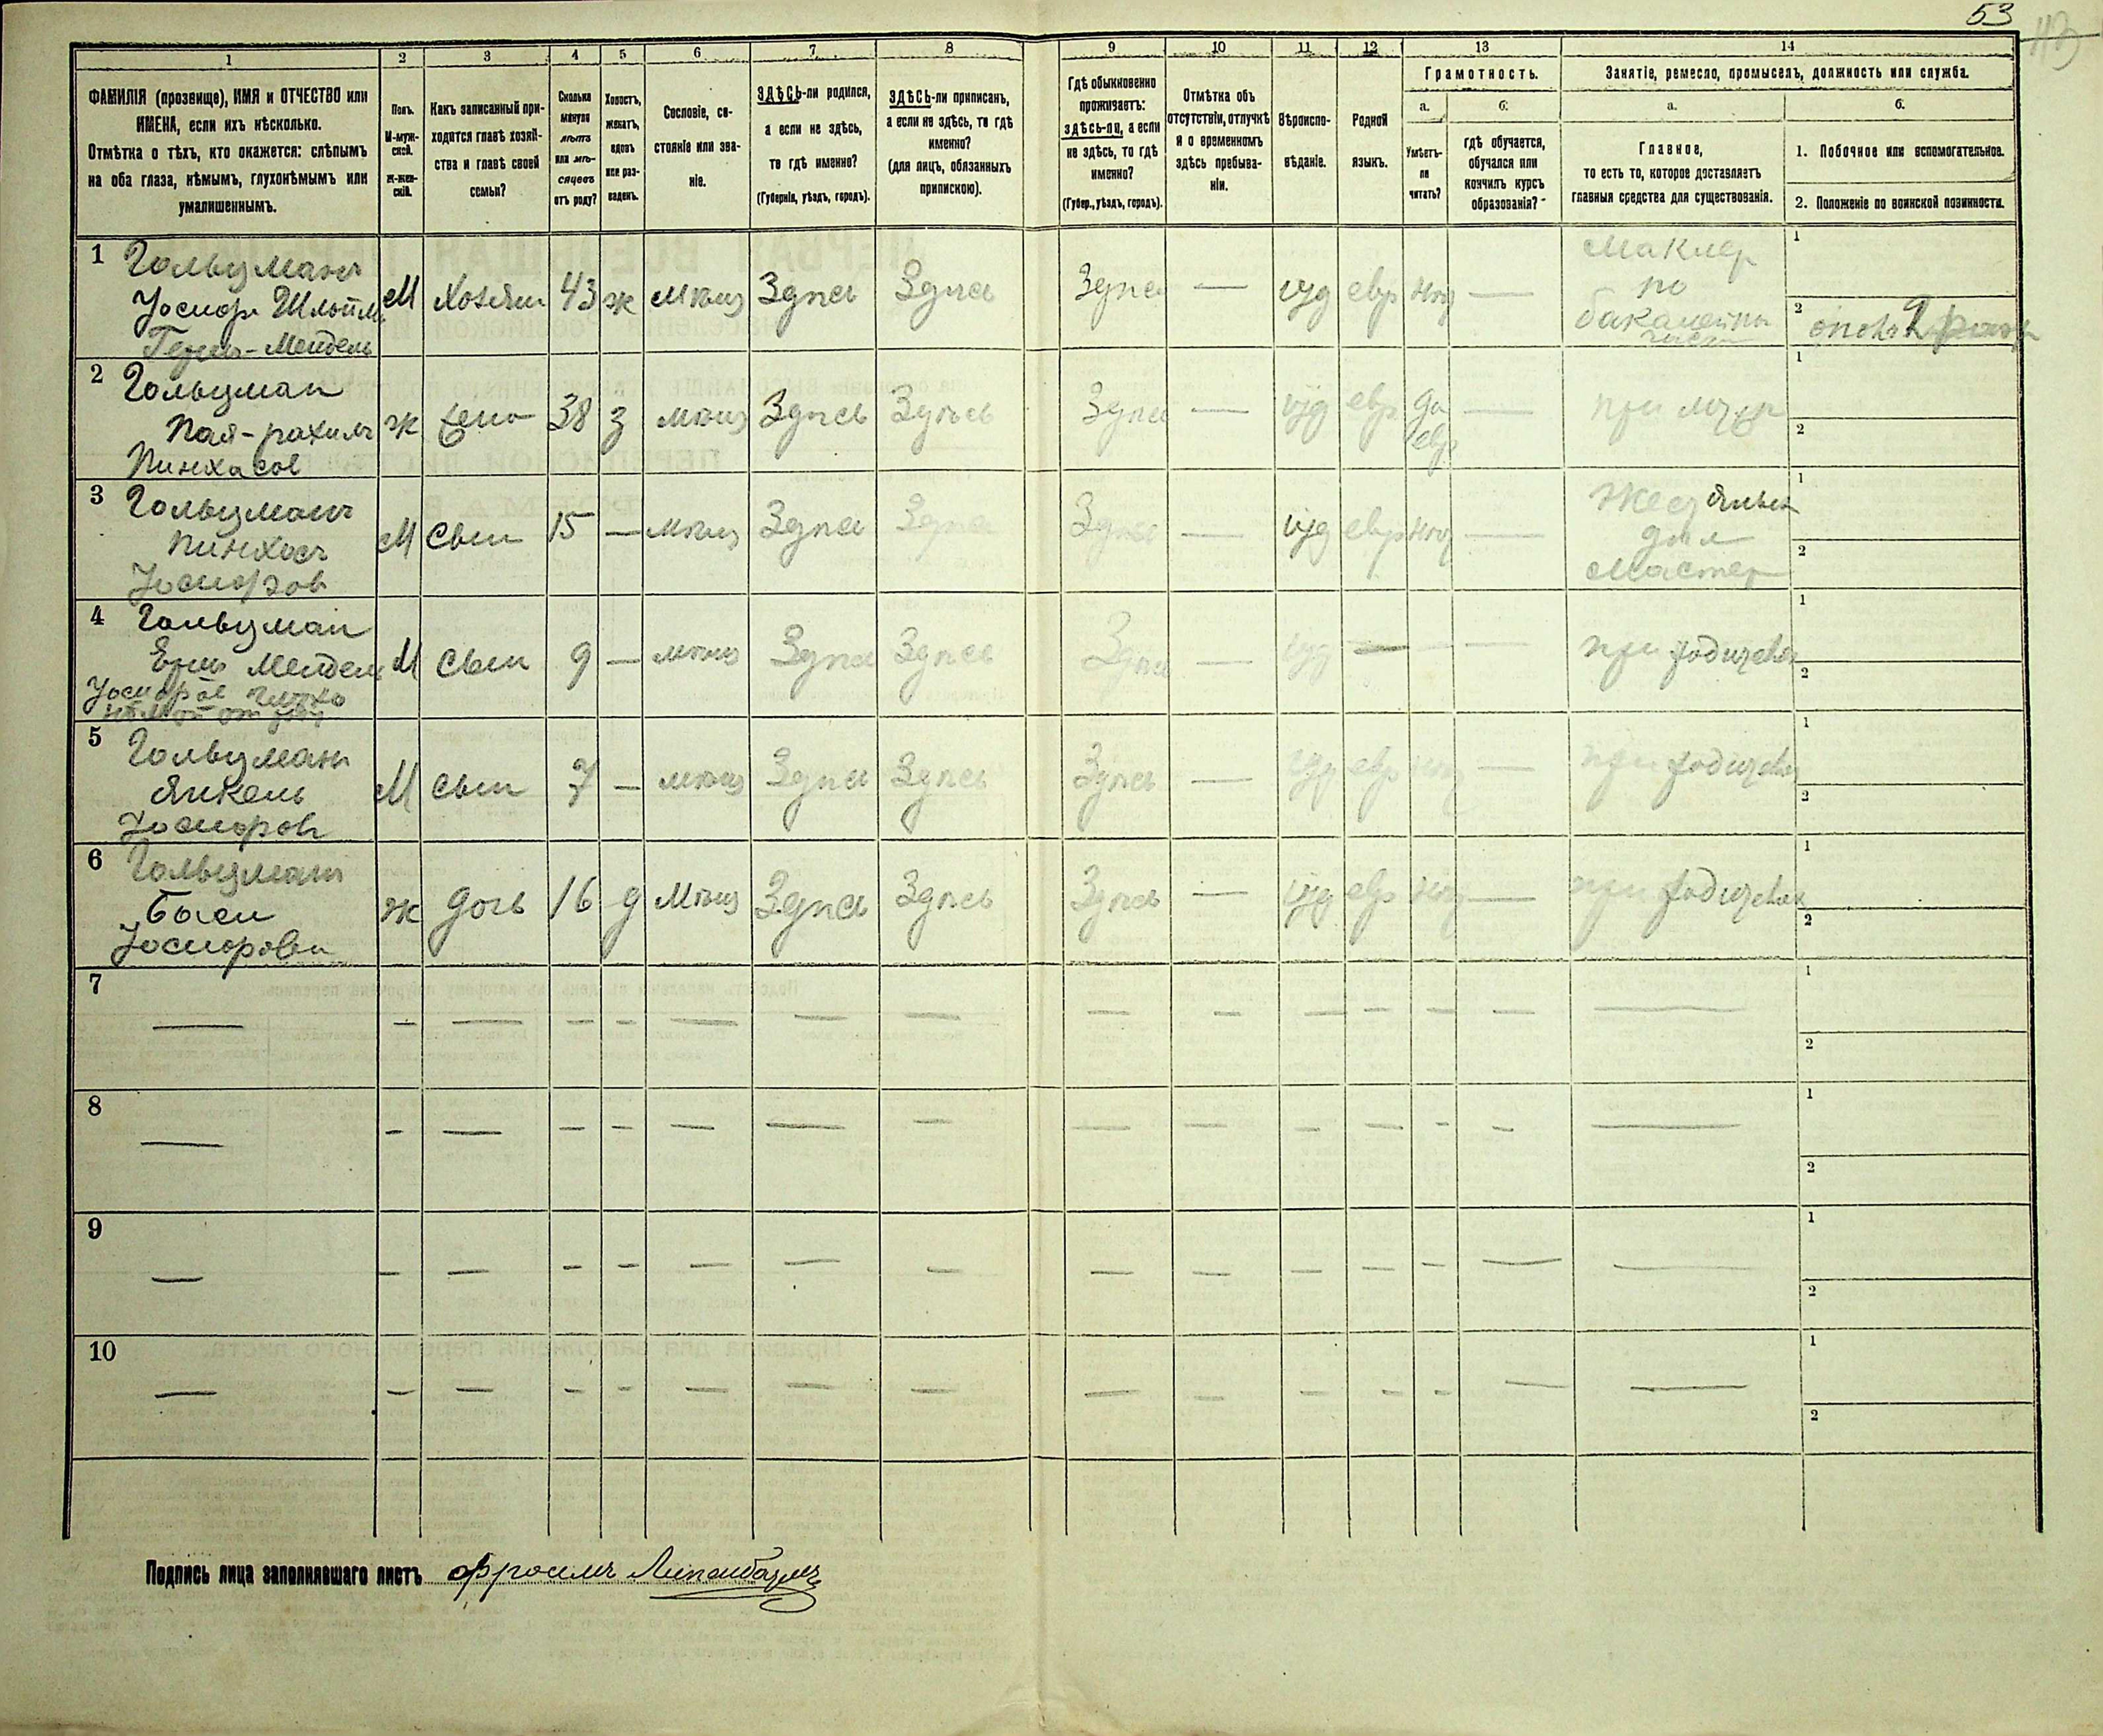 53
113
1 2 3 4 5 6 7 8 9 10 11 12 13 14
ФАМИЛІЯ (прозвище), ИМЯ и ОТЧЕСТВО или
ИМЕНА, если ихъ нѣсколько.
Отмѣтка о тѣхъ, кто окажется: слѣпымъ
на оба глаза, нѣмымъ, глухонѣмымъ или
умалишеннымъ.
Полъ.
М-муж-
ской.
ж-жен-
скій.
Какъ записанный при-
ходится главѣ хозяй-
ства и главѣ своей
семьи?
Сколько
минуло
лѣтъ
или мѣ-
сяцевъ
отъ роду?
Холостъ,
женатъ,
вдовъ
или раз-
веденъ.
Сословіе, со-
стояніе или зва-
ніе.
ЗДѢСЬ-ли родился,
а если не здѣсь,
то гдѣ именно?
(Губернія, уѣздъ, городъ).
ЗДѢСЬ-ли приписанъ,
а если не здѣсь, то гдѣ
именно?
(для лицъ, обязанныхъ
припискою).
Гдѣ обыкновенно
проживаетъ:
здѣсь-ли, а если
не здѣсь, то гдѣ
именно?
(Губер., уѣздъ, городъ).
Отмѣтка объ
отсутствіи, отлучкѣ
и о временномъ
здѣсь пребыва-
ніи.
Вѣроиспо-
вѣданіе.
Родной
языкъ.
Грамотность.
а.
Умѣетъ-
ли
читать?
б.
гдѣ обучается,
обучался или
кончилъ курсъ
образованія?
Занятіе, ремесло, промыселъ, должность или служба.
а.
Главное,
то есть то, которое доставляетъ
главныя средства для существованія.
б.
1. Побочное или вспомогательное.
2. Положеніе по воинской повинности.
1 Гольцманъ
Іосиф Шлойм
Герш-Мендель
М Хозяин 43 ж мѣщ Здѣсь Здѣсь Здѣсь — іуд евр нѣт —
Маклер
по
бакалейны
1
2
2 Гольцман
Пая-рахиль
Пинхасов
ж жена 38 з мѣщ Здѣсь Здѣсь Здѣсь — іуд евр да
евр —
при муж
1
2
3 Гольцманъ
Пинхосъ
Іосифов
М сын 15 — мѣщ Здѣсь Здѣсь Здѣсь — іуд евр нѣт —
дѣл
Мастер
1
2
4 Гольцман
Ерш Мендель
Іосифов глухо
нѣмой от
М сын 9 — мѣщ Здѣсь Здѣсь Здѣсь — іуд — — —
при родителях
1
2
5 Гольцманъ
Янкель
Іосифовъ
М сын 7 — мѣщ Здѣсь Здѣсь Здѣсь — іуд евр нѣт —
при родителях
1
2
6 Гольцманъ
Баси
Іосифовн
ж дочь 16 д мѣщ Здѣсь Здѣсь Здѣсь — іуд евр нѣт —
при родителях
1
2
7 — — — — — — — — — — — — — — —
1
2
8 — — — — — — — — — — — — — — —
1
2
9 — — — — — — — — — — — — — — —
1
2
10 — — — — — — — — — — — — — — —
1
2
Подпись лица заполнявшаго листъ Фроимъ